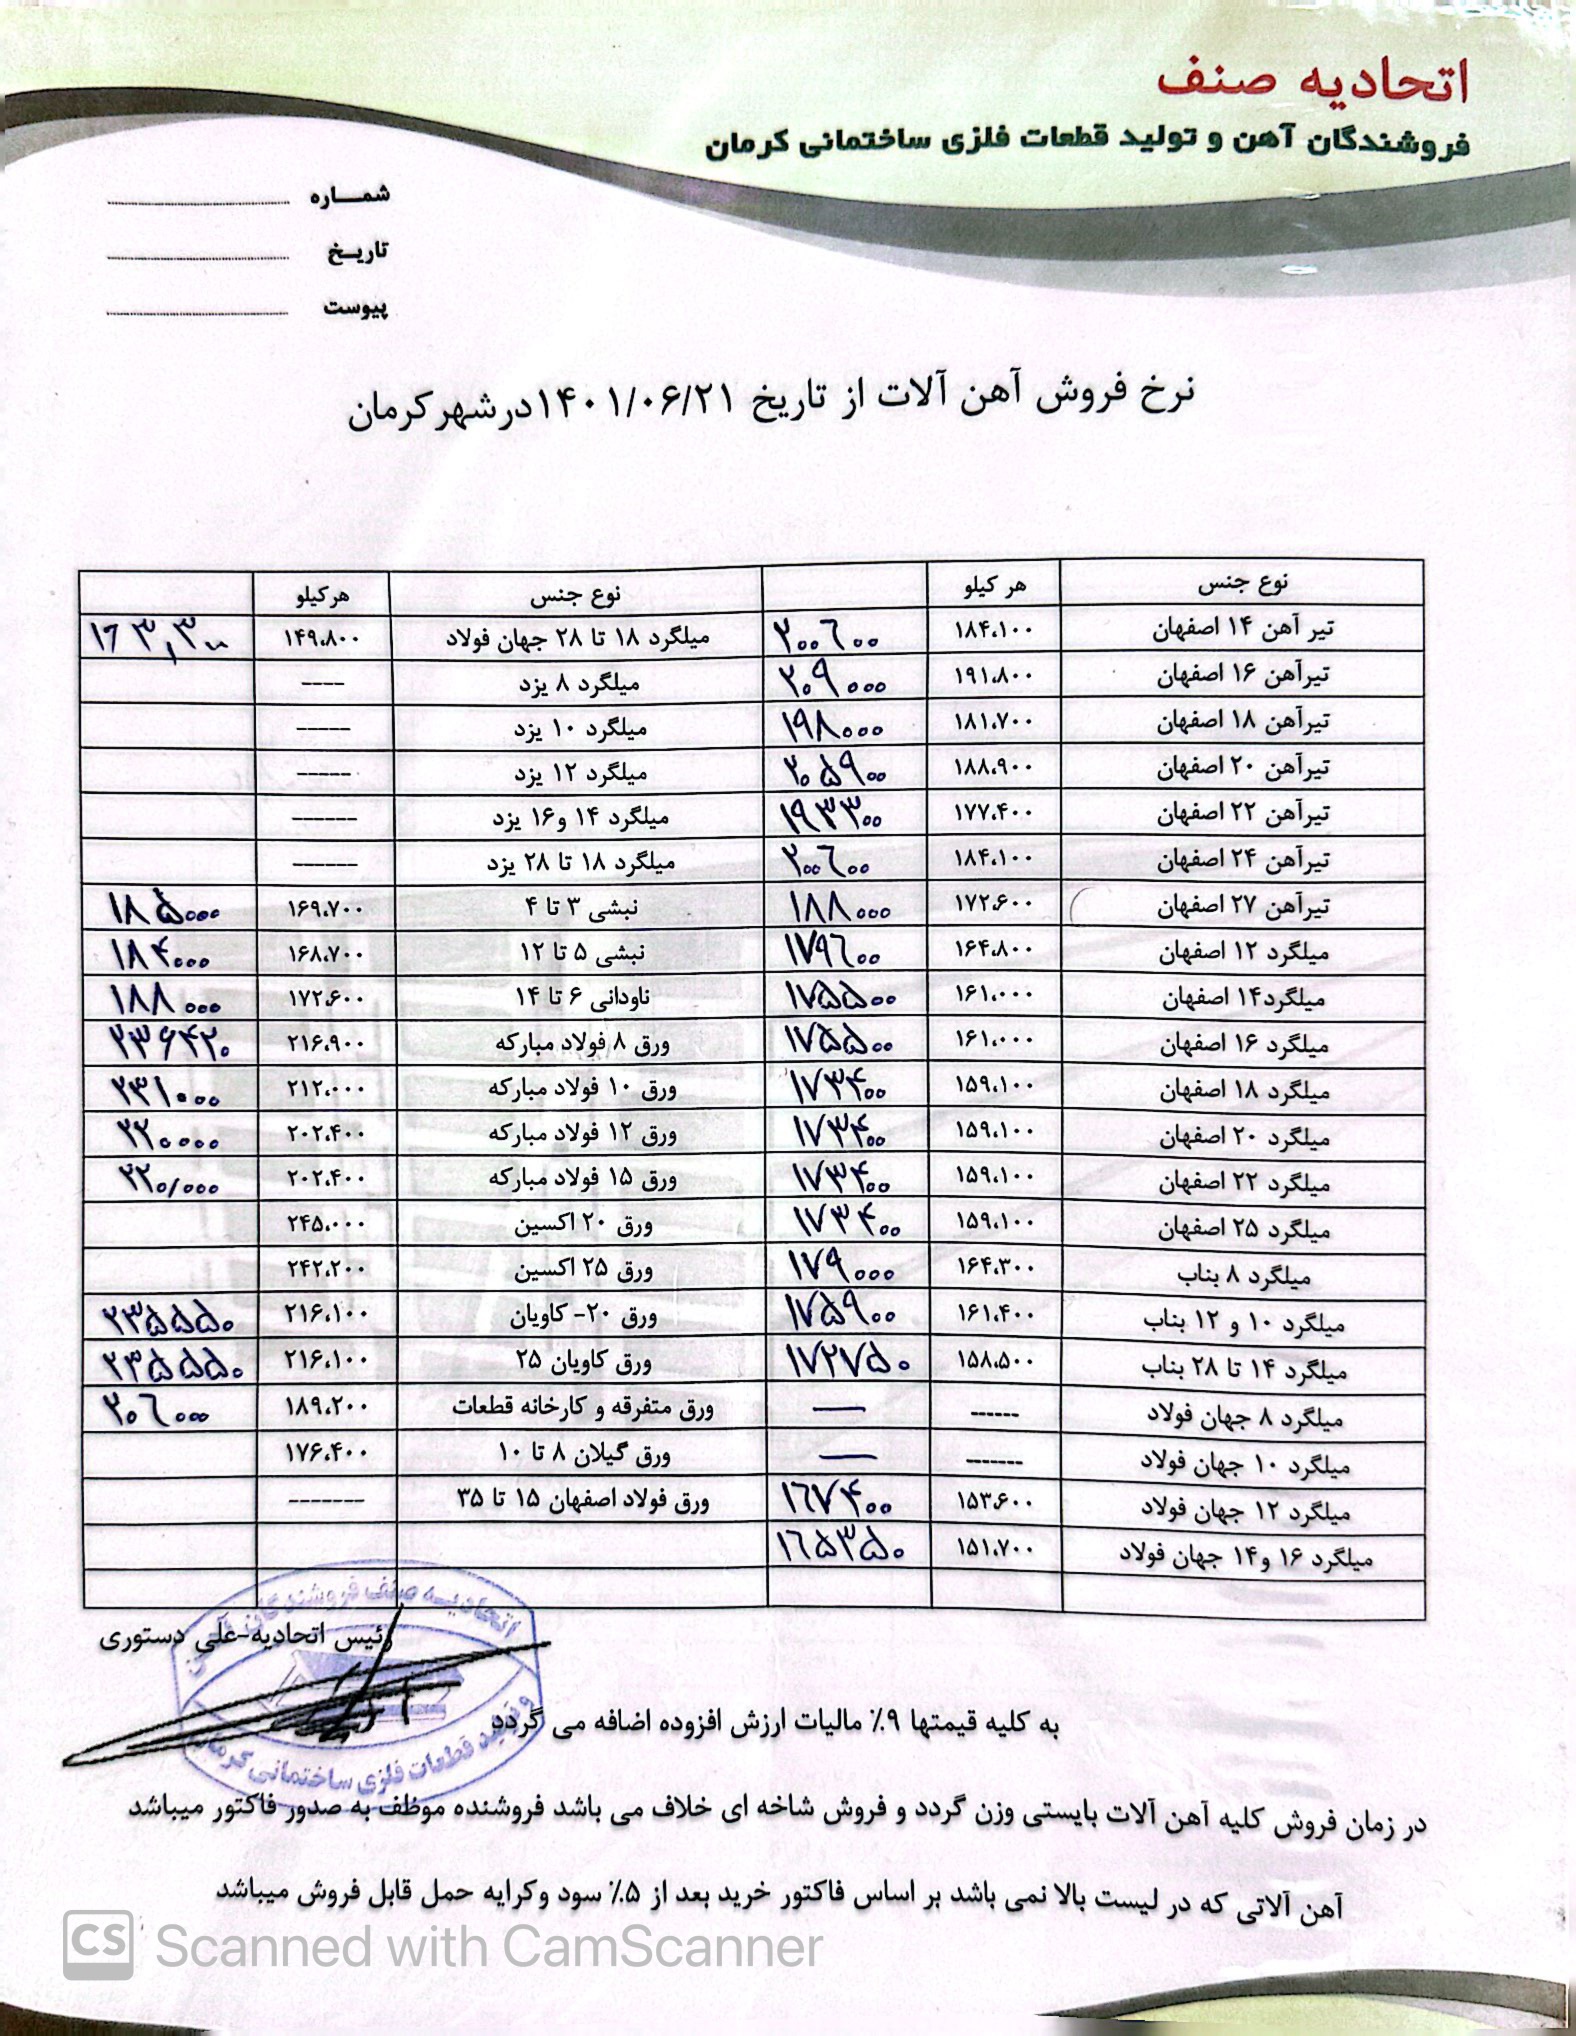 اتحادیه صنف
فروشندگان آهن و تولید قطعات فلزی ساختمانی کرمان
شمـــاره
تاریـخ
پیوست
نرخ فروش آهن آلات از تاریخ ۱۴۰۱/۰۶/۲۱درشهرکرمان
نوع جنس هر کیلو نوع جنس هرکیلو
تیر آهن ۱۴ اصفهان ۱۸۴،۱۰۰ ۲۰۰۶۰۰ میلگرد ۱۸ تا ۲۸ جهان فولاد ۱۴۹،۸۰۰ ۱۶۳,۳۰۰
تیرآهن ۱۶ اصفهان ۱۹۱،۸۰۰ ۲۰۹۰۰۰ میلگرد ۸ یزد ----
تیرآهن ۱۸ اصفهان ۱۸۱،۷۰۰ ۱۹۸۰۰۰ میلگرد ۱۰ یزد -----
تیرآهن ۲۰ اصفهان ۱۸۸،۹۰۰ ۲۰۵۹۰۰ میلگرد ۱۲ یزد -----
تیرآهن ۲۲ اصفهان ۱۷۷،۴۰۰ ۱۹۳۳۰۰ میلگرد ۱۴ و۱۶ یزد ------
تیرآهن ۲۴ اصفهان ۱۸۴،۱۰۰ ۲۰۰۶۰۰ میلگرد ۱۸ تا ۲۸ یزد ------
تیرآهن ۲۷ اصفهان ۱۷۲،۶۰۰ ۱۸۸۰۰۰ نبشی ۳ تا ۴ ۱۶۹،۷۰۰ ۱۸۵۰۰۰
میلگرد ۱۲ اصفهان ۱۶۴،۸۰۰ ۱۷۹۶۰۰ نبشی ۵ تا ۱۲ ۱۶۸،۷۰۰ ۱۸۴۰۰۰
میلگرد۱۴ اصفهان ۱۶۱،۰۰۰ ۱۷۵۵۰۰ ناودانی ۶ تا ۱۴ ۱۷۲،۶۰۰ ۱۸۸۰۰۰
میلگرد ۱۶ اصفهان ۱۶۱،۰۰۰ ۱۷۵۵۰۰ ورق ۸ فولاد مبارکه ۲۱۶،۹۰۰ ۲۳۶۴۲۰
میلگرد ۱۸ اصفهان ۱۵۹،۱۰۰ ۱۷۳۴۰۰ ورق ۱۰ فولاد مبارکه ۲۱۲،۰۰۰ ۲۳۱۰۰۰
میلگرد ۲۰ اصفهان ۱۵۹،۱۰۰ ۱۷۳۴۰۰ ورق ۱۲ فولاد مبارکه ۲۰۲،۴۰۰ ۲۲۰۰۰۰
میلگرد ۲۲ اصفهان ۱۵۹،۱۰۰ ۱۷۳۴۰۰ ورق ۱۵ فولاد مبارکه ۲۰۲،۴۰۰ ۲۲۰/۰۰۰
میلگرد ۲۵ اصفهان ۱۵۹،۱۰۰ ۱۷۳۴۰۰ ورق ۲۰ اکسین ۲۴۵،۰۰۰
میلگرد ۸ بناب ۱۶۴،۳۰۰ ۱۷۹۰۰۰ ورق ۲۵ اکسین ۲۴۲،۲۰۰
میلگرد ۱۰ و ۱۲ بناب ۱۶۱،۴۰۰ ۱۷۵۹۰۰ ورق ۲۰- کاویان ۲۱۶،۱۰۰ ۲۳۵۵۵۰
میلگرد ۱۴ تا ۲۸ بناب ۱۵۸،۵۰۰ ۱۷۲۷۵۰ ورق کاویان ۲۵ ۲۱۶،۱۰۰ ۲۳۵۵۵۰
میلگرد ۸ جهان فولاد ------ — ورق متفرقه و کارخانه قطعات ۱۸۹،۲۰۰ ۲۰۶۰۰۰
میلگرد ۱۰ جهان فولاد ------- — ورق گیلان ۸ تا ۱۰ ۱۷۶،۴۰۰
میلگرد ۱۲ جهان فولاد ۱۵۳،۶۰۰ ۱۶۷۴۰۰ ورق فولاد اصفهان ۱۵ تا ۳۵ -------
میلگرد ۱۶ و۱۴ جهان فولاد ۱۵۱،۷۰۰ ۱۶۵۳۵۰
رئیس اتحادیه-علی دستوری
اتحادیـه صنف فروشندگان آهن
و تولید قطعات فلزی ساختمانی کرمان
به کلیه قیمتها ۹٪ مالیات ارزش افزوده اضافه می گردد
در زمان فروش کلیه آهن آلات بایستی وزن گردد و فروش شاخه ای خلاف می باشد فروشنده موظف به صدور فاکتور میباشد
آهن آلاتی که در لیست بالا نمی باشد بر اساس فاکتور خرید بعد از ۵٪ سود وکرایه حمل قابل فروش میباشد
CS Scanned with CamScanner